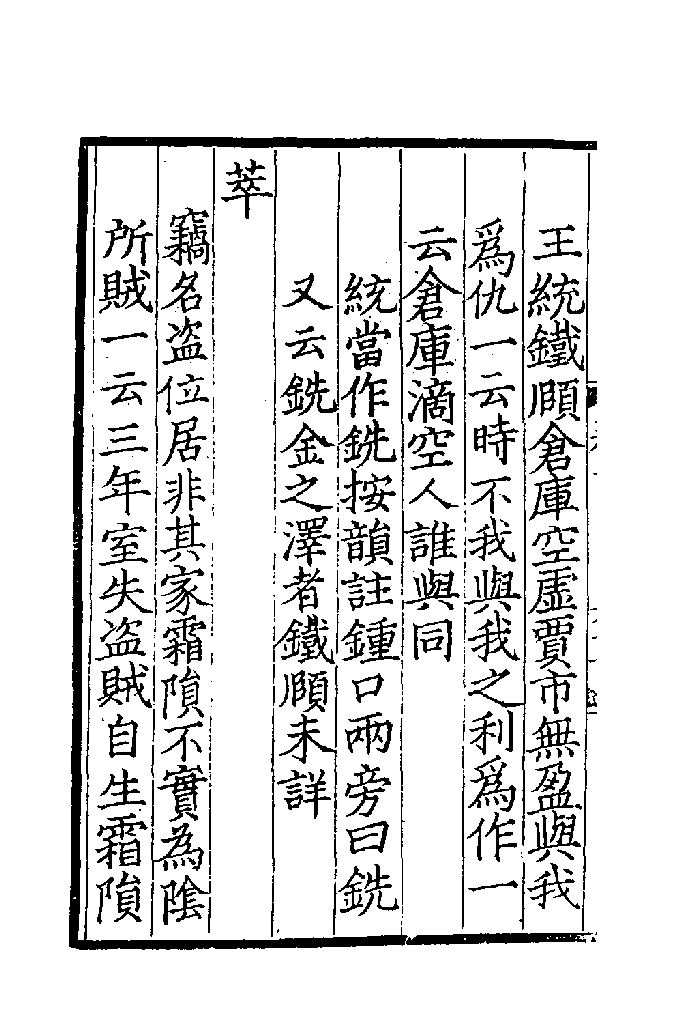 王統鐵頤倉庫空虛賈市無盈與我
爲仇一云時不我與我之利爲作一
云倉庫滴空人誰與同
統當作銑按韻註鍾口兩旁曰銑
又云銑金之澤者鐵頤未詳
萃
竊名盗位居非其家霜隕不實為陰
所賊一云三年室失盗賊自生霜隕